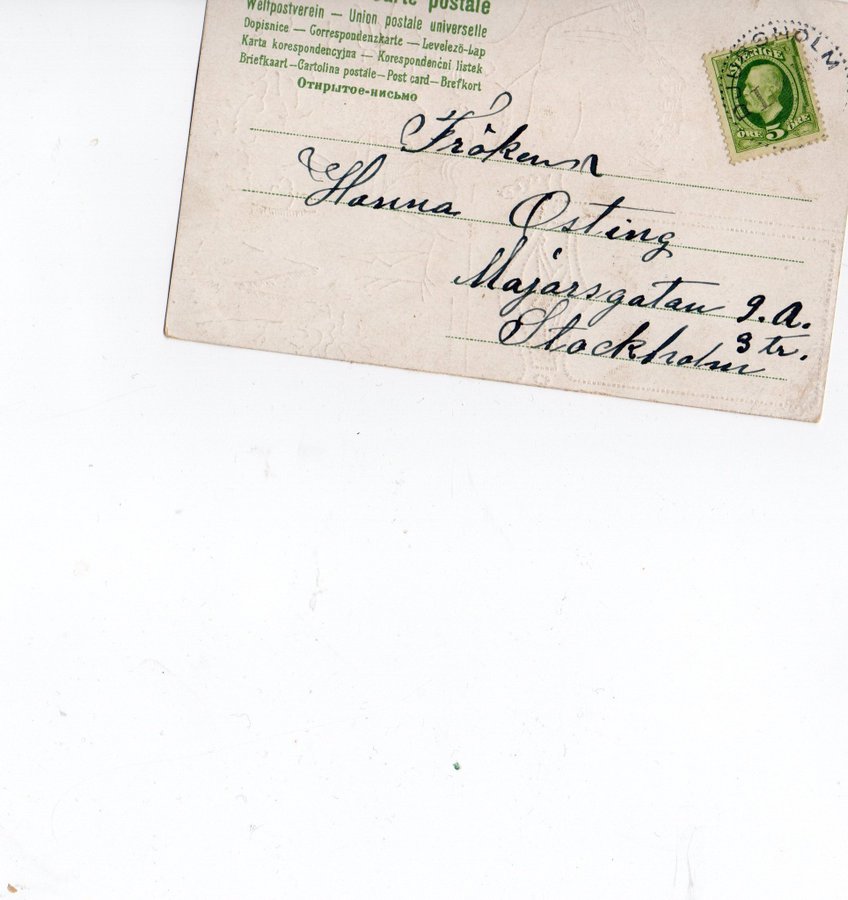 Carte postale
Weltpostverein — Union postale universelle
Dopisnice — Correspondenzkarte — Levelező-Lap
Karta korespondencyjna — Korespondenční listek
Briefkaart — Cartolina postale — Post card — Brefkort
Открытое-письмо
SVERIGE
5
ÖRE ÖRE
Fröken
Hanna Östing
Majorsgatan 9.A.
3 tr.
Stockholm